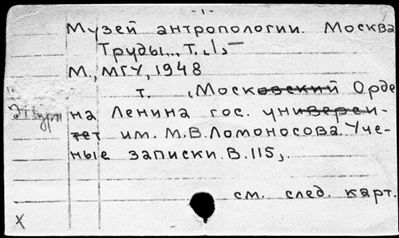 -1-
Музей антропологии. Москва
Труды... т. 1,-
М., МГУ, 1948
т. , Московский Орде
на Ленина гос. универси-
тет им. М.В. Ломоносова. Уче-
ные записки. В. 115,
см. след. карт.
X